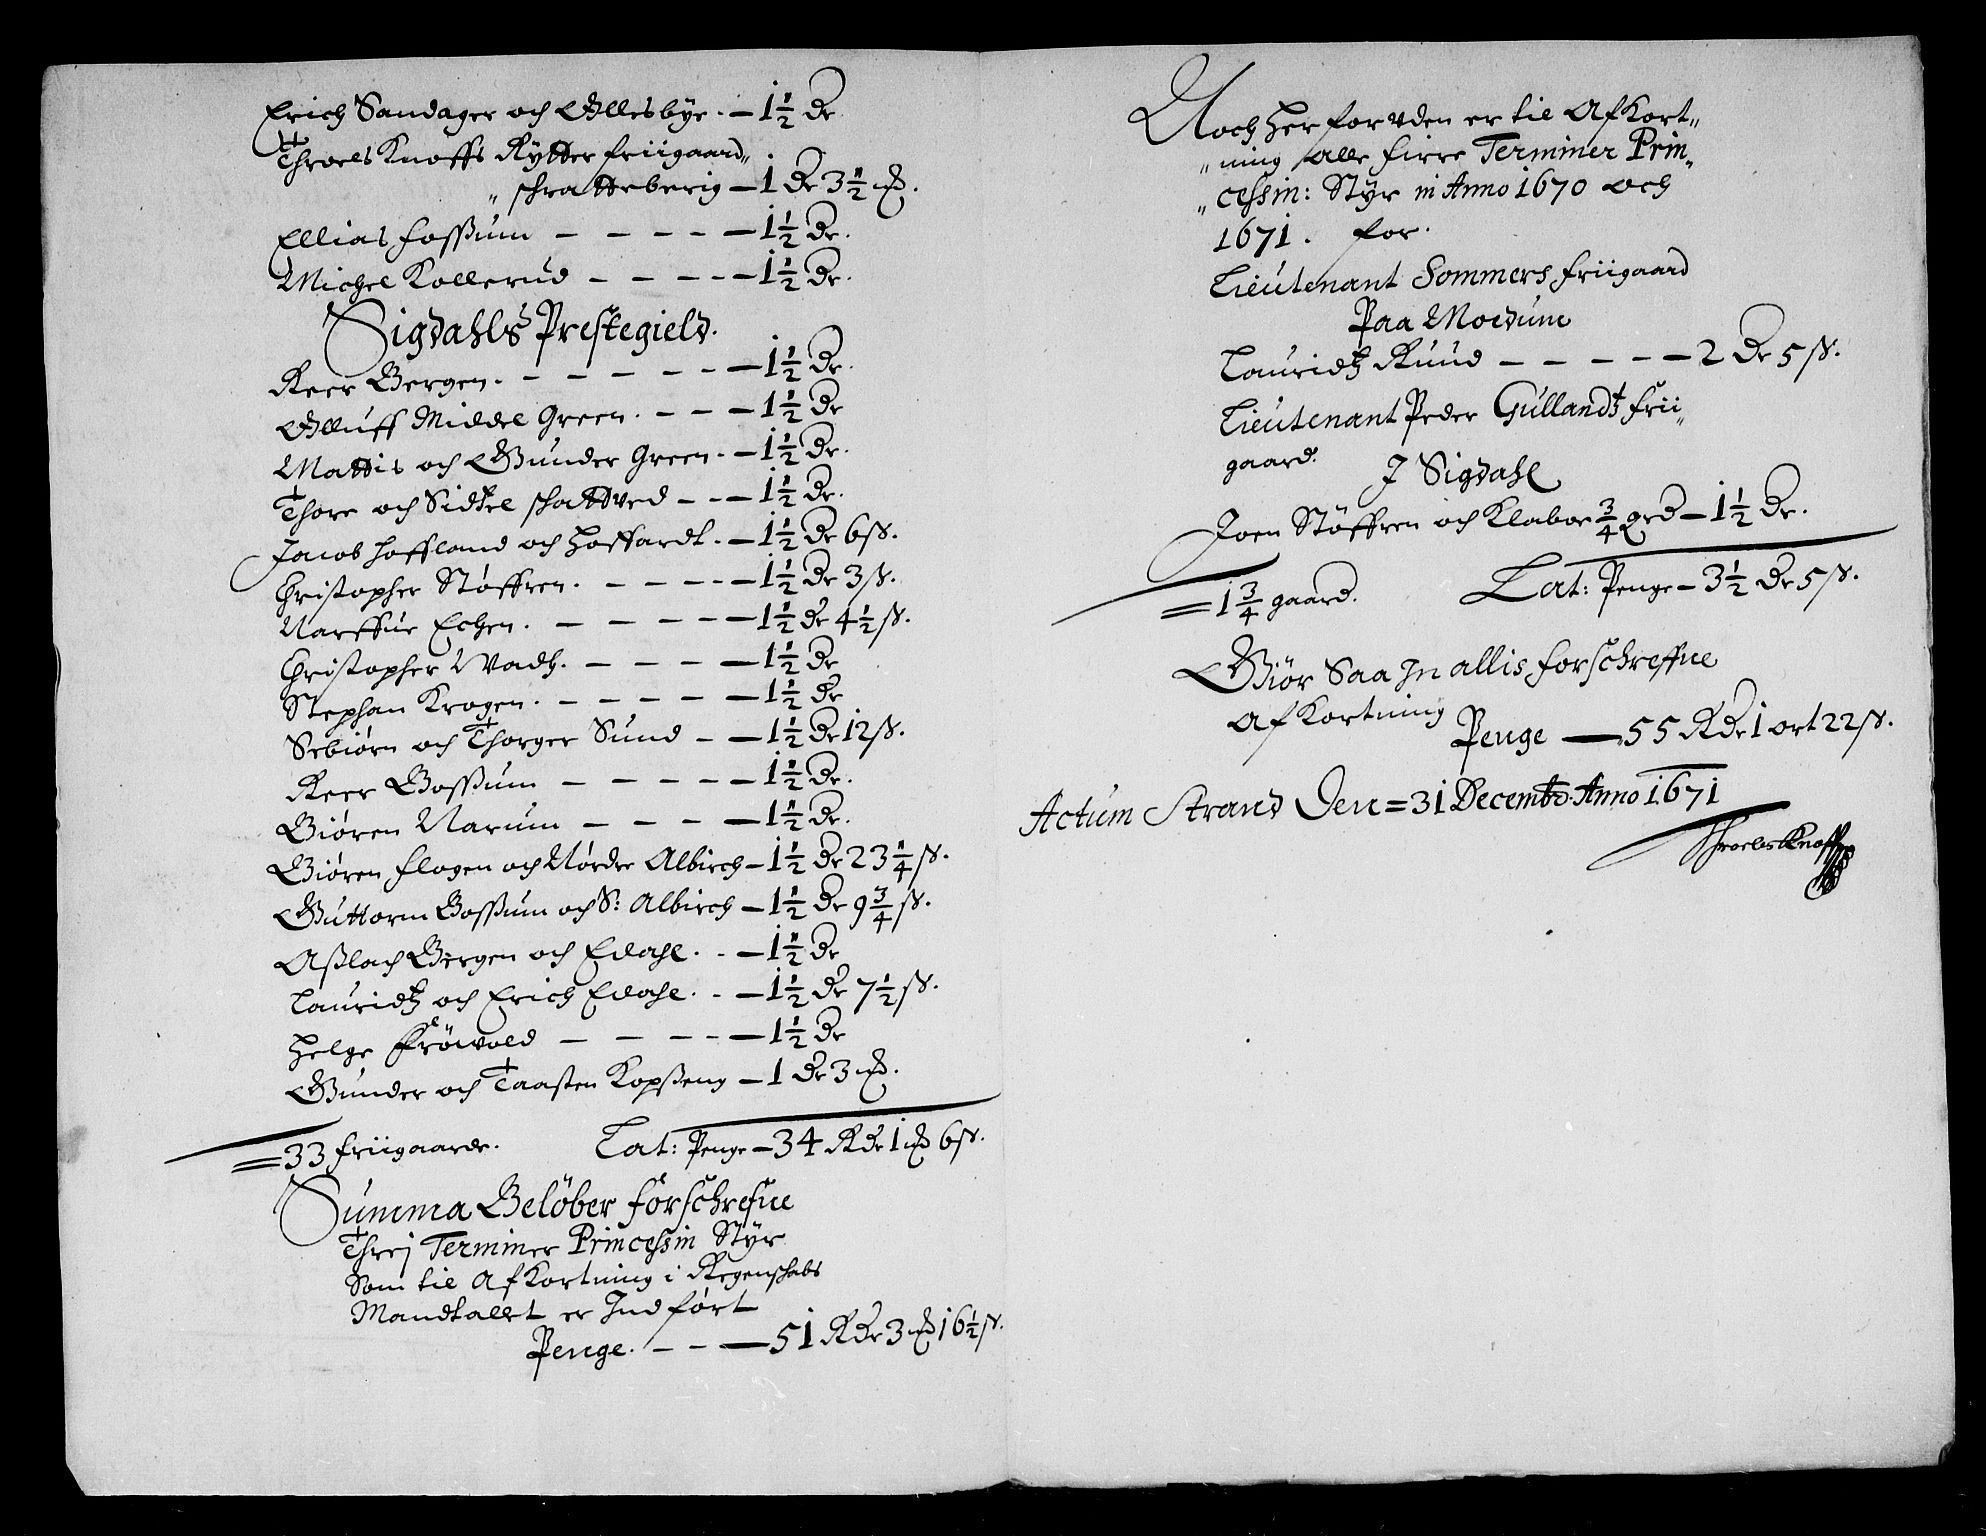 Erich Sandager och Ollesbye. — 1½ dr.
Throels Knoffs Rytter friigaard„
„ schratteberig — 1 dr 3½ mk.
Ellias Fossum — — — — 1½ dr.
Michel Kollerud — — — — 1½ dr.
Sigdahls Prestegield.
Reer Bergen. — — — — — 1½ dr.
Olluff Middel Green. — — — 1½ dr
Mattis och Gunder Green. — 1½ dr.
Thore och Sidsel schattved — — 1½ dr.
Jacob Hoffland och Hoffardt. — 1½ dr 6 s.
Christopher Støffren. — — — — 1½ dr 3 s.
Narffue Echen. — — — — — 1½ dr 4½ s.
Christopher Wadtz. — — — — 1½ dr
Stephan Krogen. — — — — — 1½ dr
Sebiørn och Thorger Sund — — 1½ dr 12 s.
Reer Gossum — — — — — 1½ dr.
Biøren Narum — — — — 1½ dr.
Biøren Flagen och Nørdre Albirch — 1½ dr 23¼ s.
Guttorm Gossum och S: Albirch — 1½ dr 9¾ s.
Asslach Bergen och Eedahl. — — 1½ dr
Lauridtz och Erich Eedahl. — — 1½ dr 7½ s.
Helge Frøwold — — — — — 1½ dr
Gunder och Taasten Kopseng — 1 dr 3 mk.
= 33 friigaarde. Lat: Penge — 34 Rdr 1 mk 6 s.
Summa Beløber forschrefue
Threj Terminer Princessin Styr
som til Afkortning i Regenschabs
Mandtallet er Indført
Penge. — — — 51 Rdr 3 mk 16½ s.
Noch her foruden er til Afkort„
„ning Alle fiire Terminer Prin„
„cessin: Styr in Anno 1670 och
1671. for.
Lieutenant Sommers friigaard
Paa Moedum
Lauridtz Ruud — — — — — 2 dr 5 s.
Lieutenant Peder Gullandtz frii„
gaard. J Sigdahl
Joen Støffren och Klaboe ¾ grd — 1½ dr.
= 1¾ gaard. Lat: Penge — 3½ dr 5 s.
Giør Saa In allis forschreffne
Afkortning
Penge — 55 Rdr 1 ort 22 s.
Actum Strand Den = 31 Decembr: Anno 1671
Throels Knoff